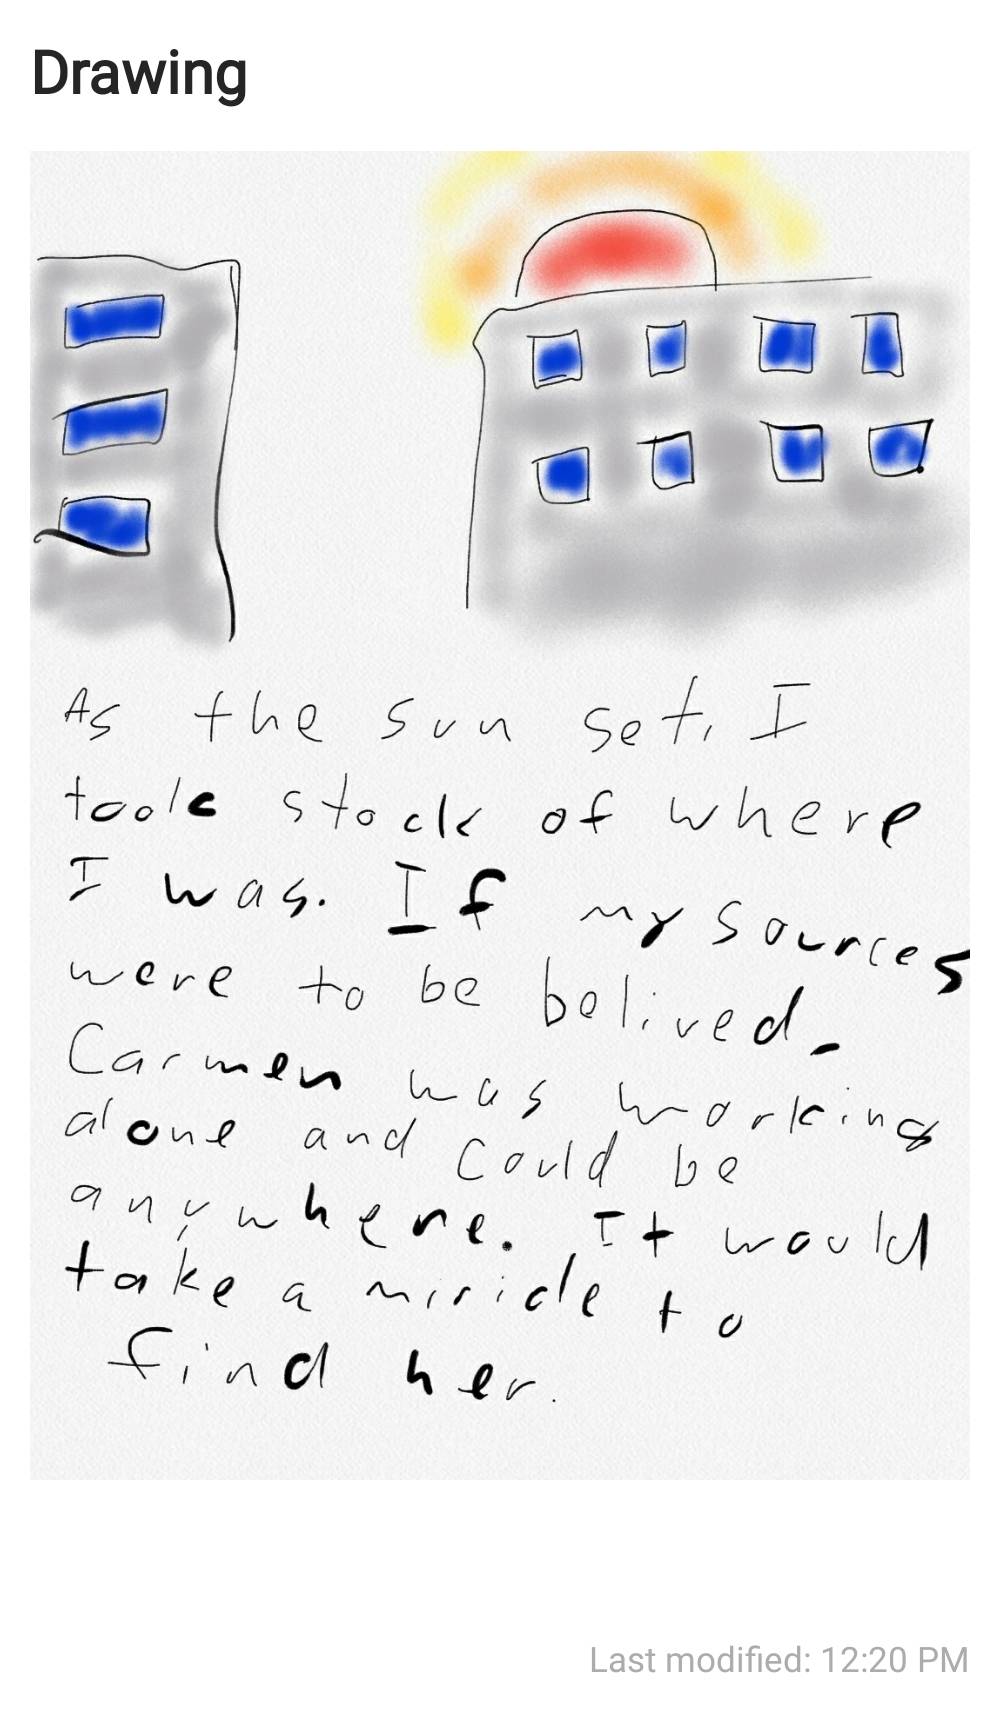 Drawing
As the sun set, I
took stock of where
I was. If my sources
were to be belived,
Carmen was working
alone and could be
anywhere. It would
take a miricle to
find her.
Last modified: 12:20 PM